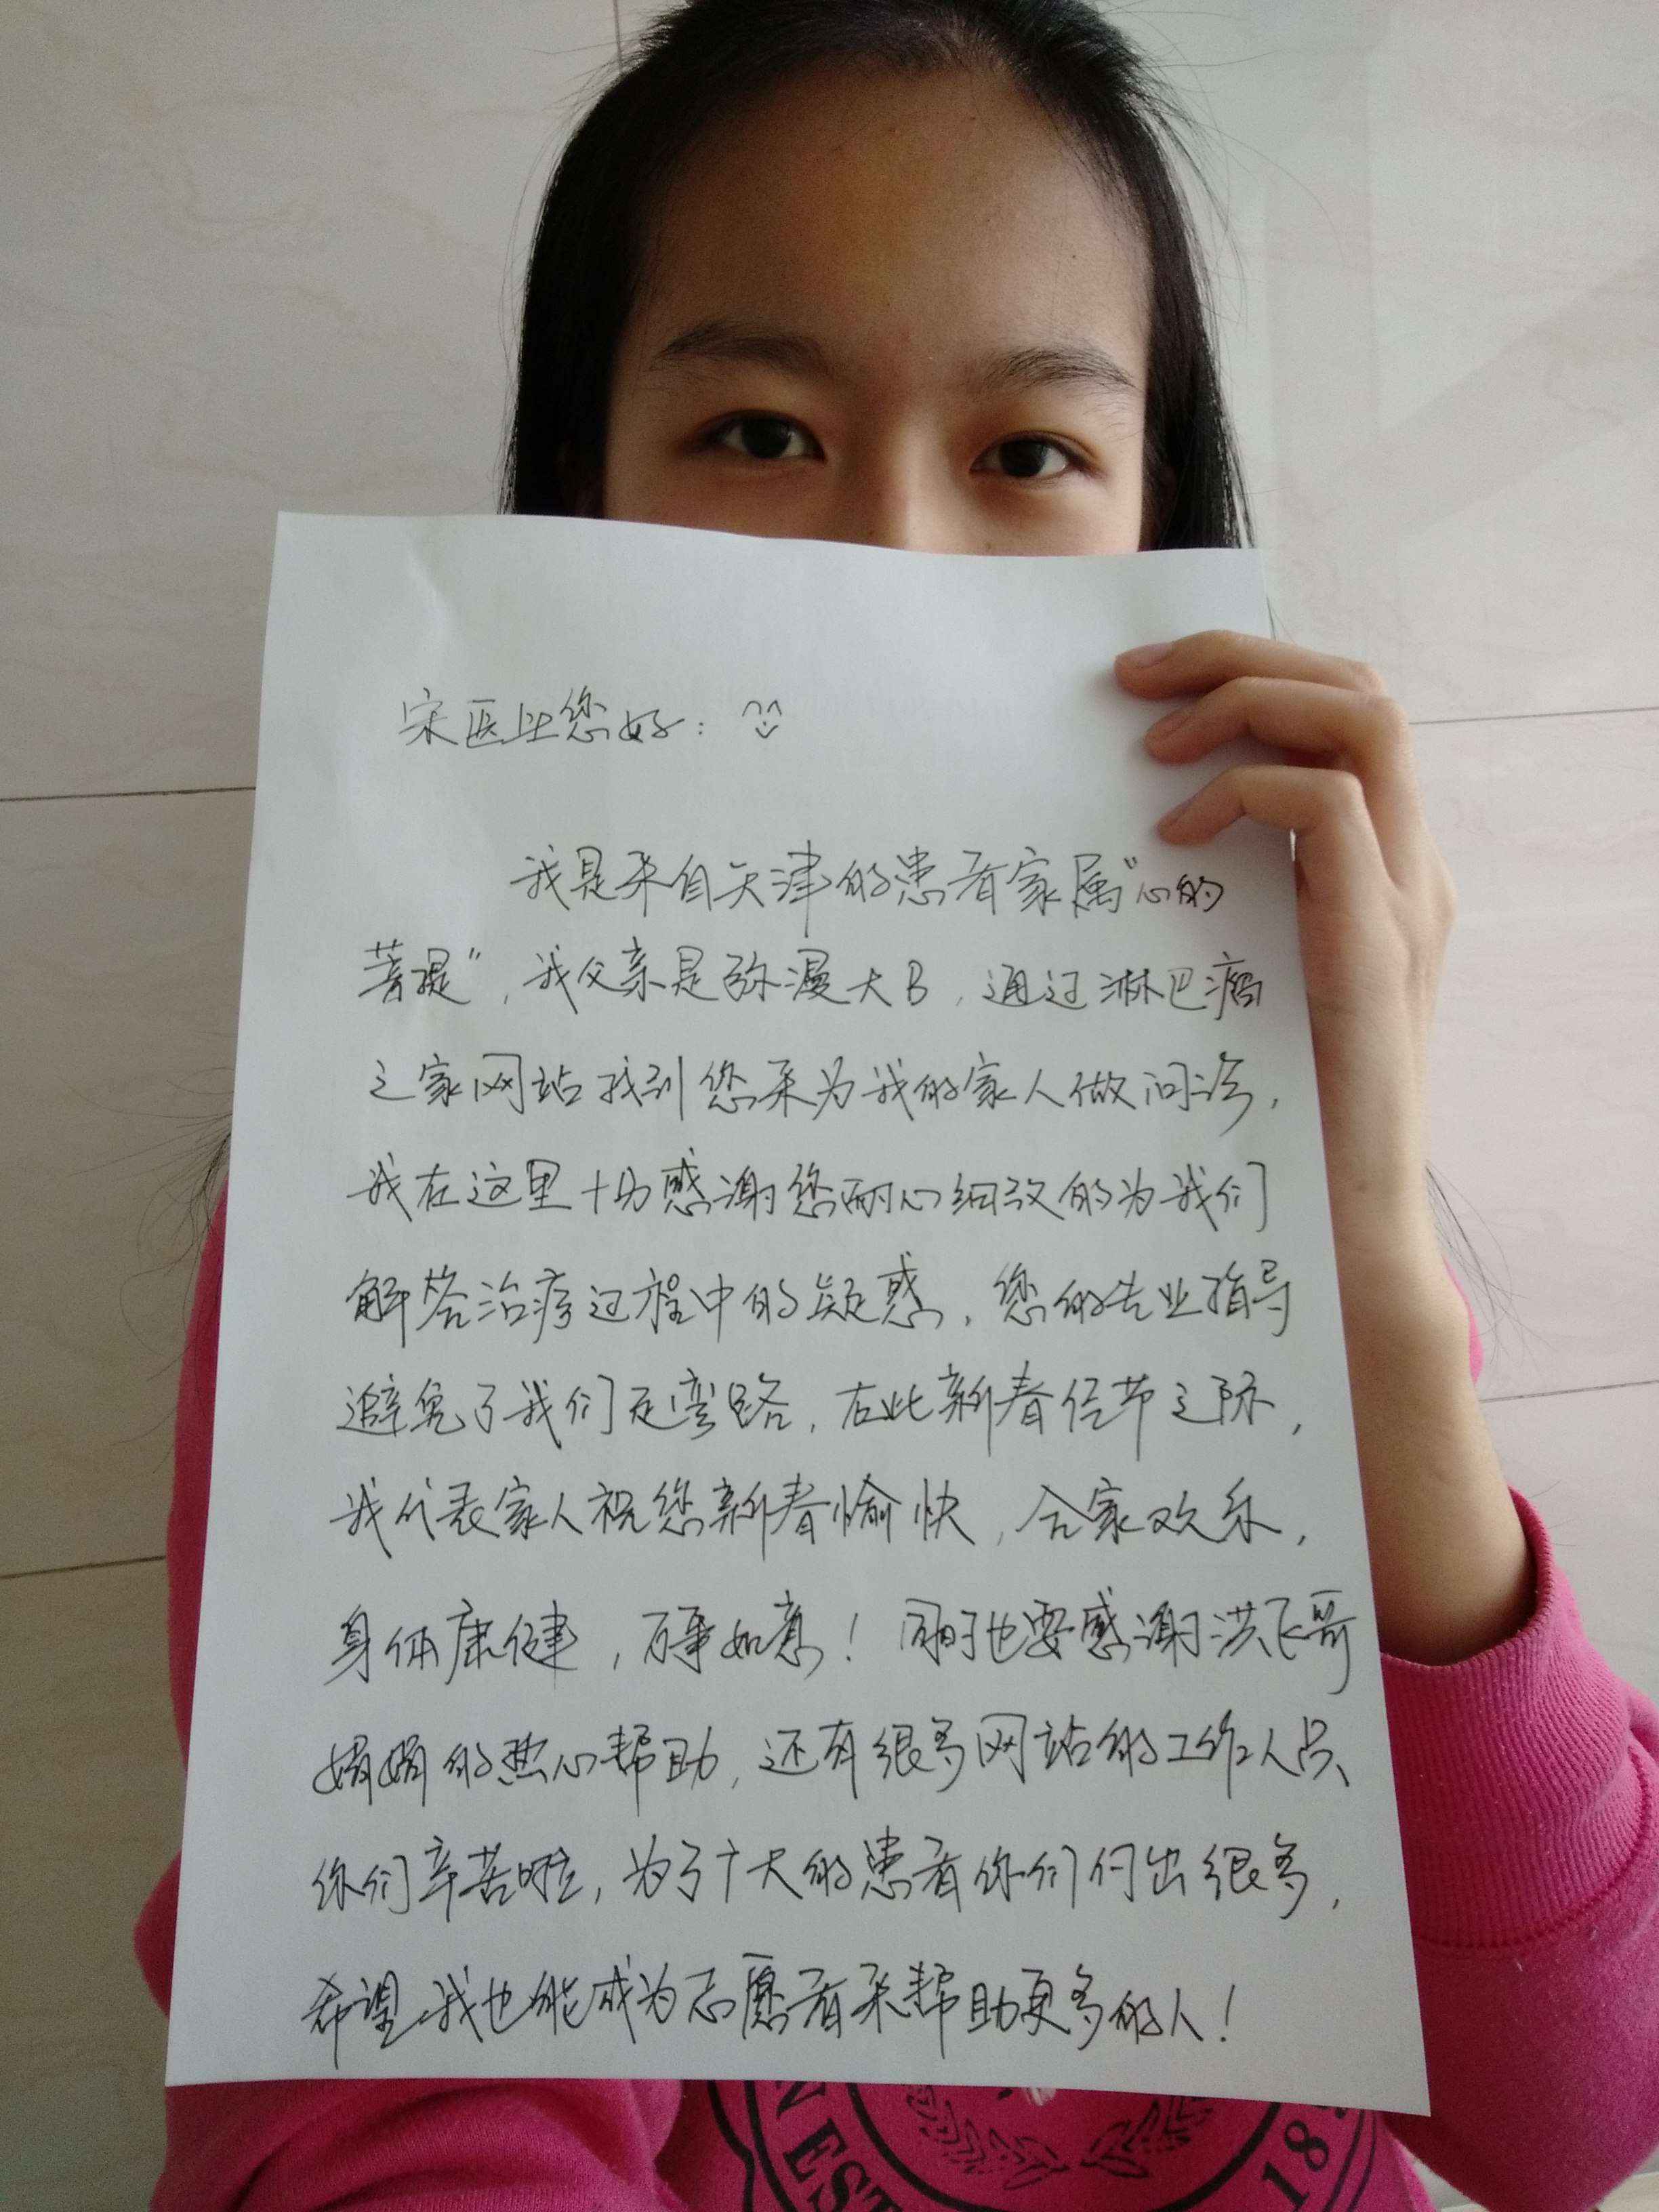 宋医生您好：
我是来自天津的患者家属“心的
菩提”，我父亲是弥漫大B，通过淋巴瘤
之家网站找到您来为我的家人做问诊，
我在这里十分感谢您耐心细致的为我们
解答治疗过程中的疑惑，您的专业指导
避免了我们走弯路，在此新春佳节之际，
我代表家人祝您新春愉快，合家欢乐，
身体康健，万事如意！同时也要感谢洪飞哥
娟娟的热心帮助，还有很多网站的工作人员
你们辛苦啦，为了广大的患者你们付出很多，
希望我也能成为志愿者来帮助更多的人！
EST
18